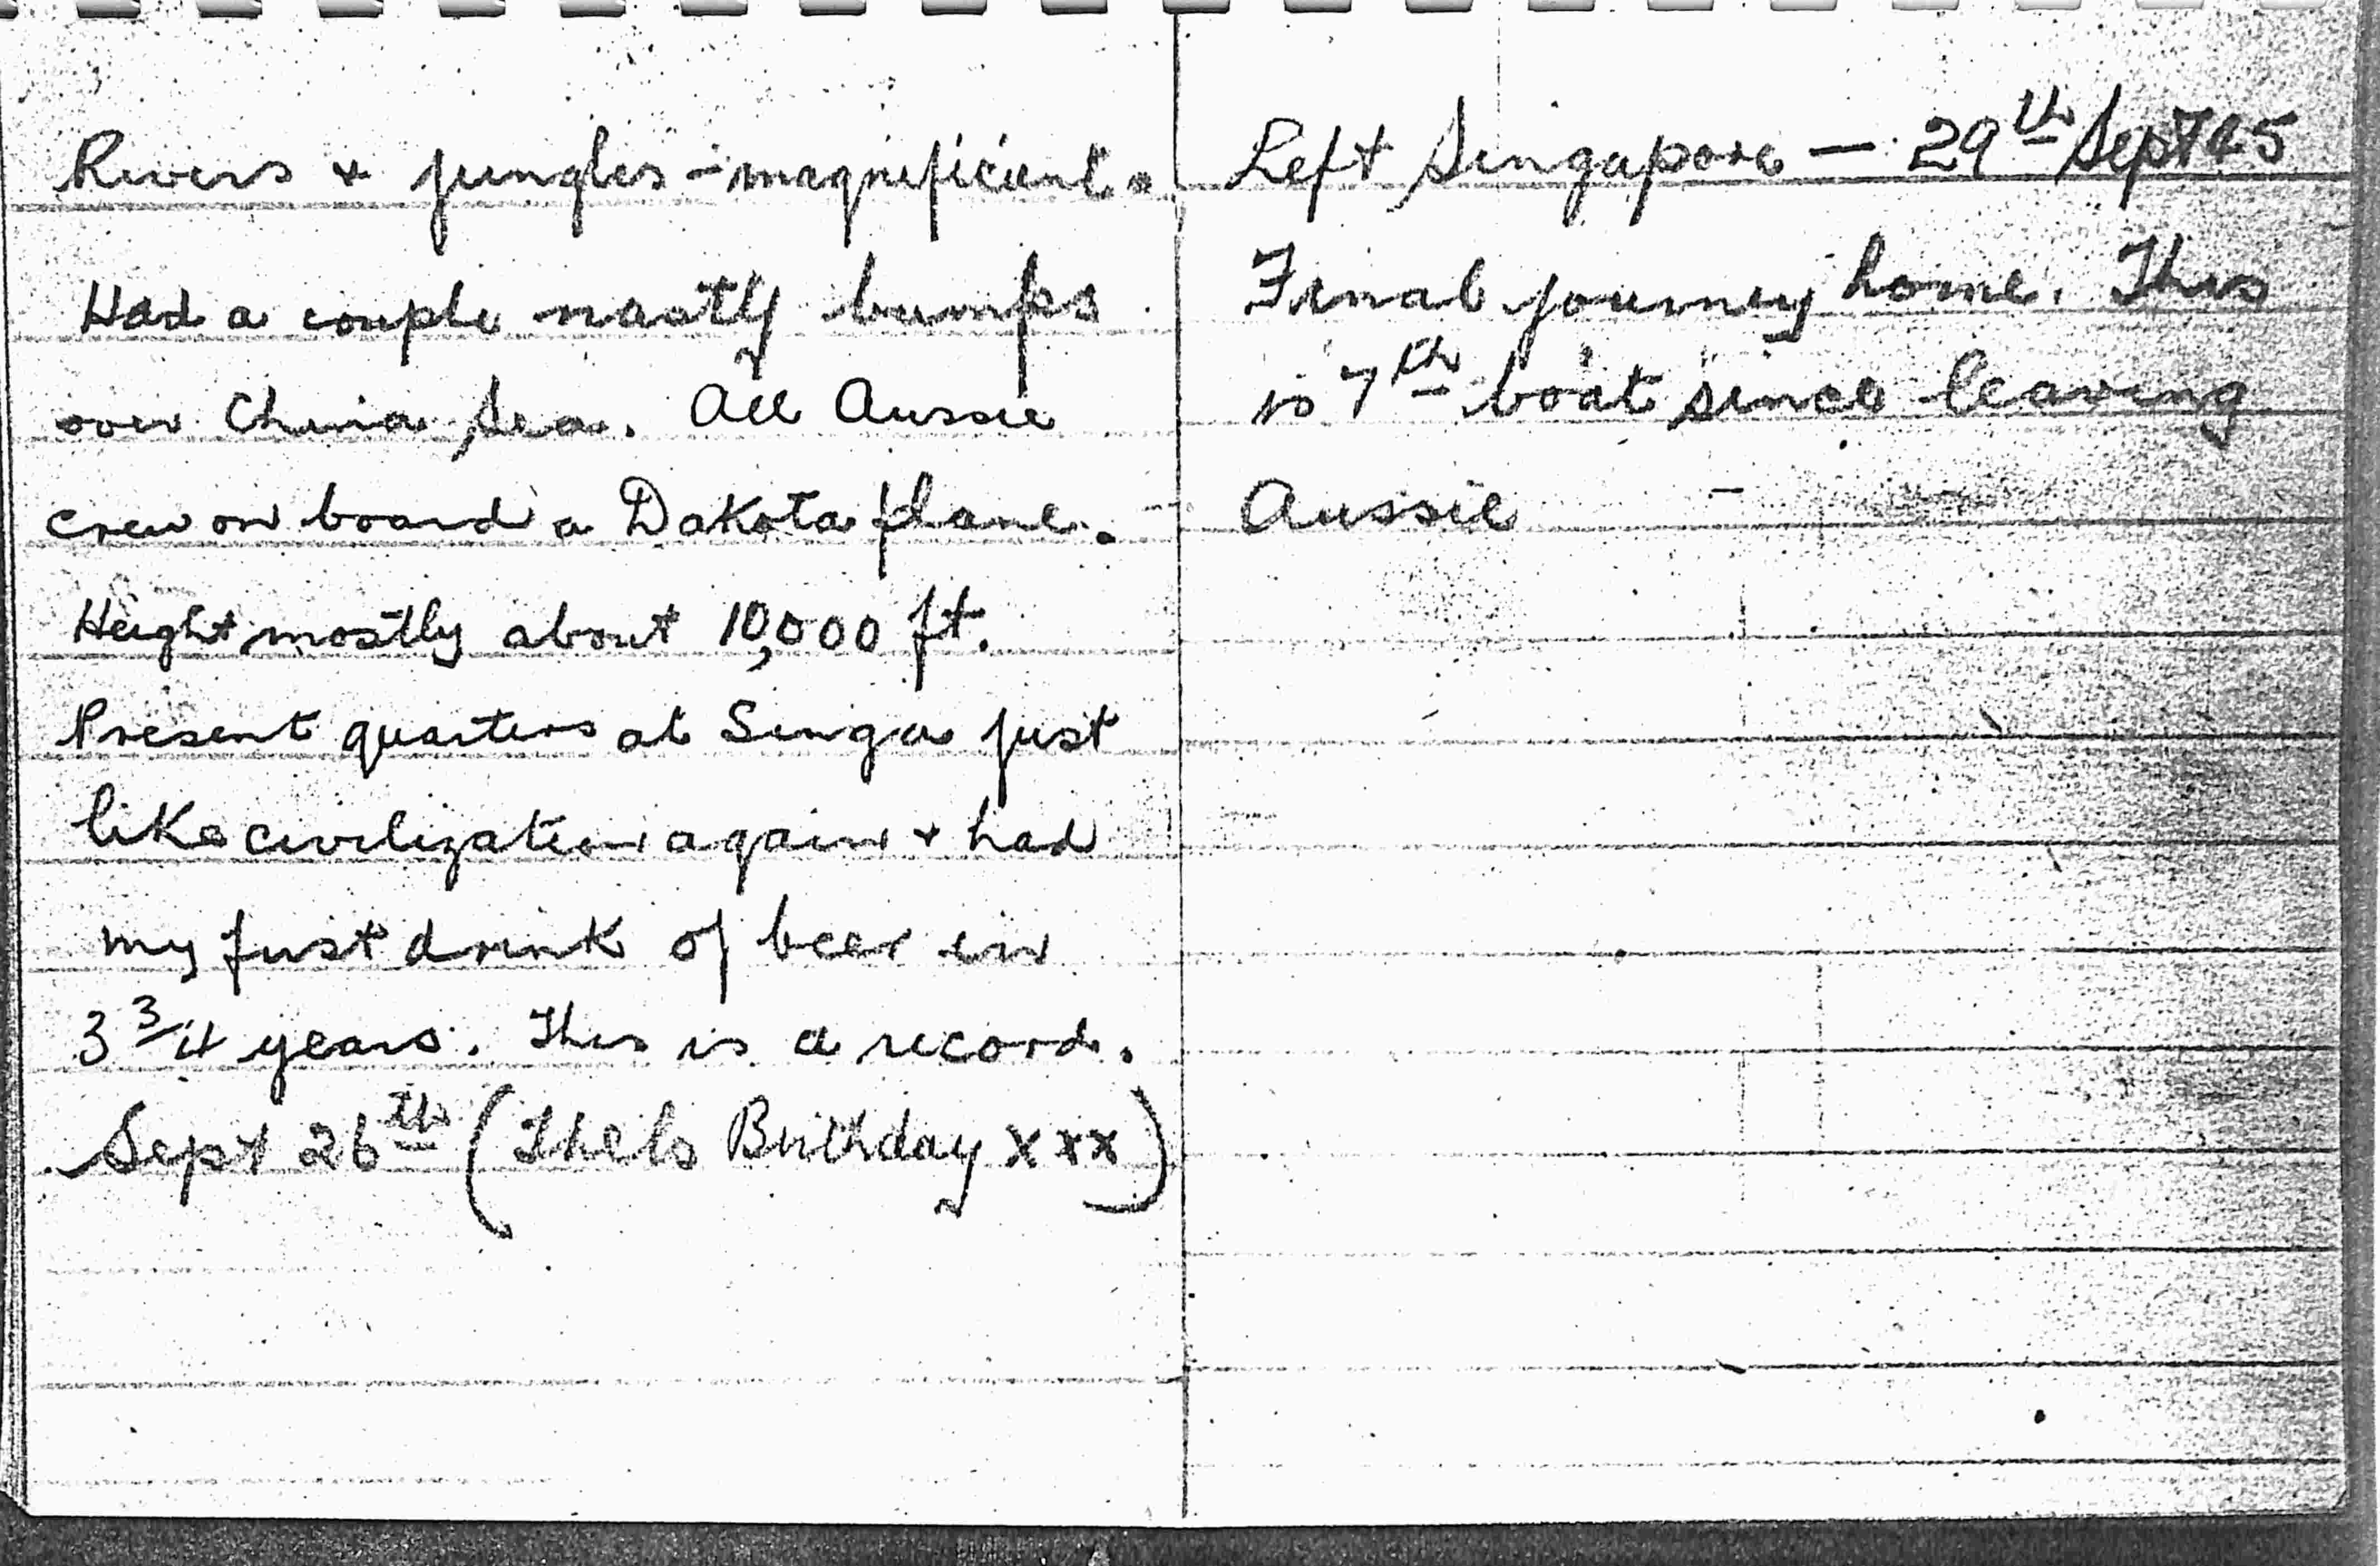 Rivers + jungles - magnificent.
Had a couple nasty bumps
over China Sea. All Aussie
crew on board a Dakota plane.
Height mostly about 10,000 ft.
Present quarters at Singa just
like civilization again + had
my first drink of beer in
3 3/4 years. This is a record.
Sept 26th (Thels Birthday xxx)
Left Singapore — 29th Sept 45
Final journey home. This
is 7th boat since leaving
Aussie